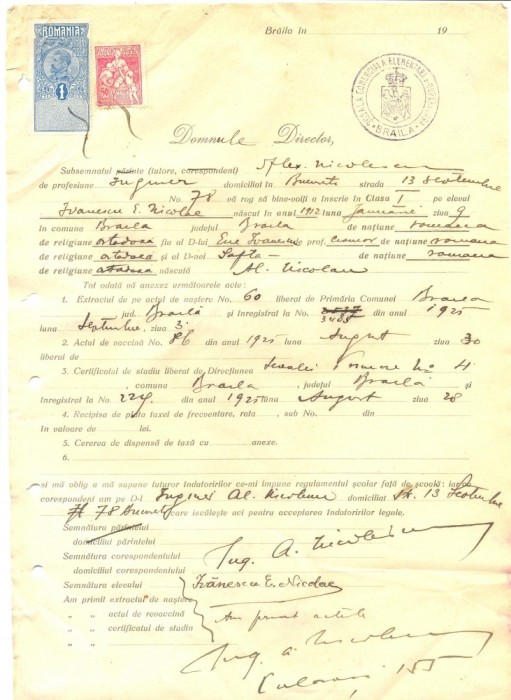 ROMANIA
1
Brăila în 19
ȘCOALA COMERCIALĂ ELEMENTARĂ
BRĂILA
Domnule Director,
Subsemnatul părinte (tutore, corespondent) Alex. Nicolescu
de profesiune Inginer domiciliat în București strada 13 Septembrie
No. 78 vă rog să bine-voiți a înscrie în Clasa I pe elevul
Ivanescu E. Nicolae născut în anul 1912 luna Januarie ziua 9
în comuna Braila județul Braila de națiune romana
de religiune ortodoxa fiu al D-lui Ene Ivanescu de prof. de națiune romana
de religiune ortodoxa și al D-nei Safta - de națiune romana
de religiune ortodoxa născută Al. Nicolau
Tot odată să anexez următoarele acte:
1. Extractul de pe actul de naștere No. 60 liberat de Primăria Comunei Braila
jud. Brailă și înregistrat la No. 3485 din anul 1925
luna Septembrie, ziua 3.
2. Actul de vaccină No. 86 din anul 1925 luna August ziua 30
liberat de
3. Certificatul de studiu liberat de Direcțiunea Scoalei Primare No 4
, comuna Braila, județul Brailă și
înregistrat la No. 224. din anul 1925 luna August ziua 28
4. Recipisa de plata taxei de frecventare, rata , sub No. din
în valoare de lei.
5. Cererea de dispensă de taxă cu anexe.
6.
și mă oblig a mă supune tuturor îndatoririlor ce-mi impune regulamentul școlar față de școală: iar
corespondent am pe D-l Inginer Al. Nicolescu domiciliat Str. 13 Septembrie
78 București care iscălește aci pentru acceptarea îndatoririlor legale.
Semnătura părintelui
domiciliul părintelui
Semnătura corespondentului Ing. A. Nicolescu
domiciliul corespondentului
Semnătura elevului Ivănescu E. Nicolae
Am primit extractul de naștere
„ „ actul de revaccină Am primit actele
„ „ certificatul de studiu
Ing. A. Nicolescu
Calarasi 155